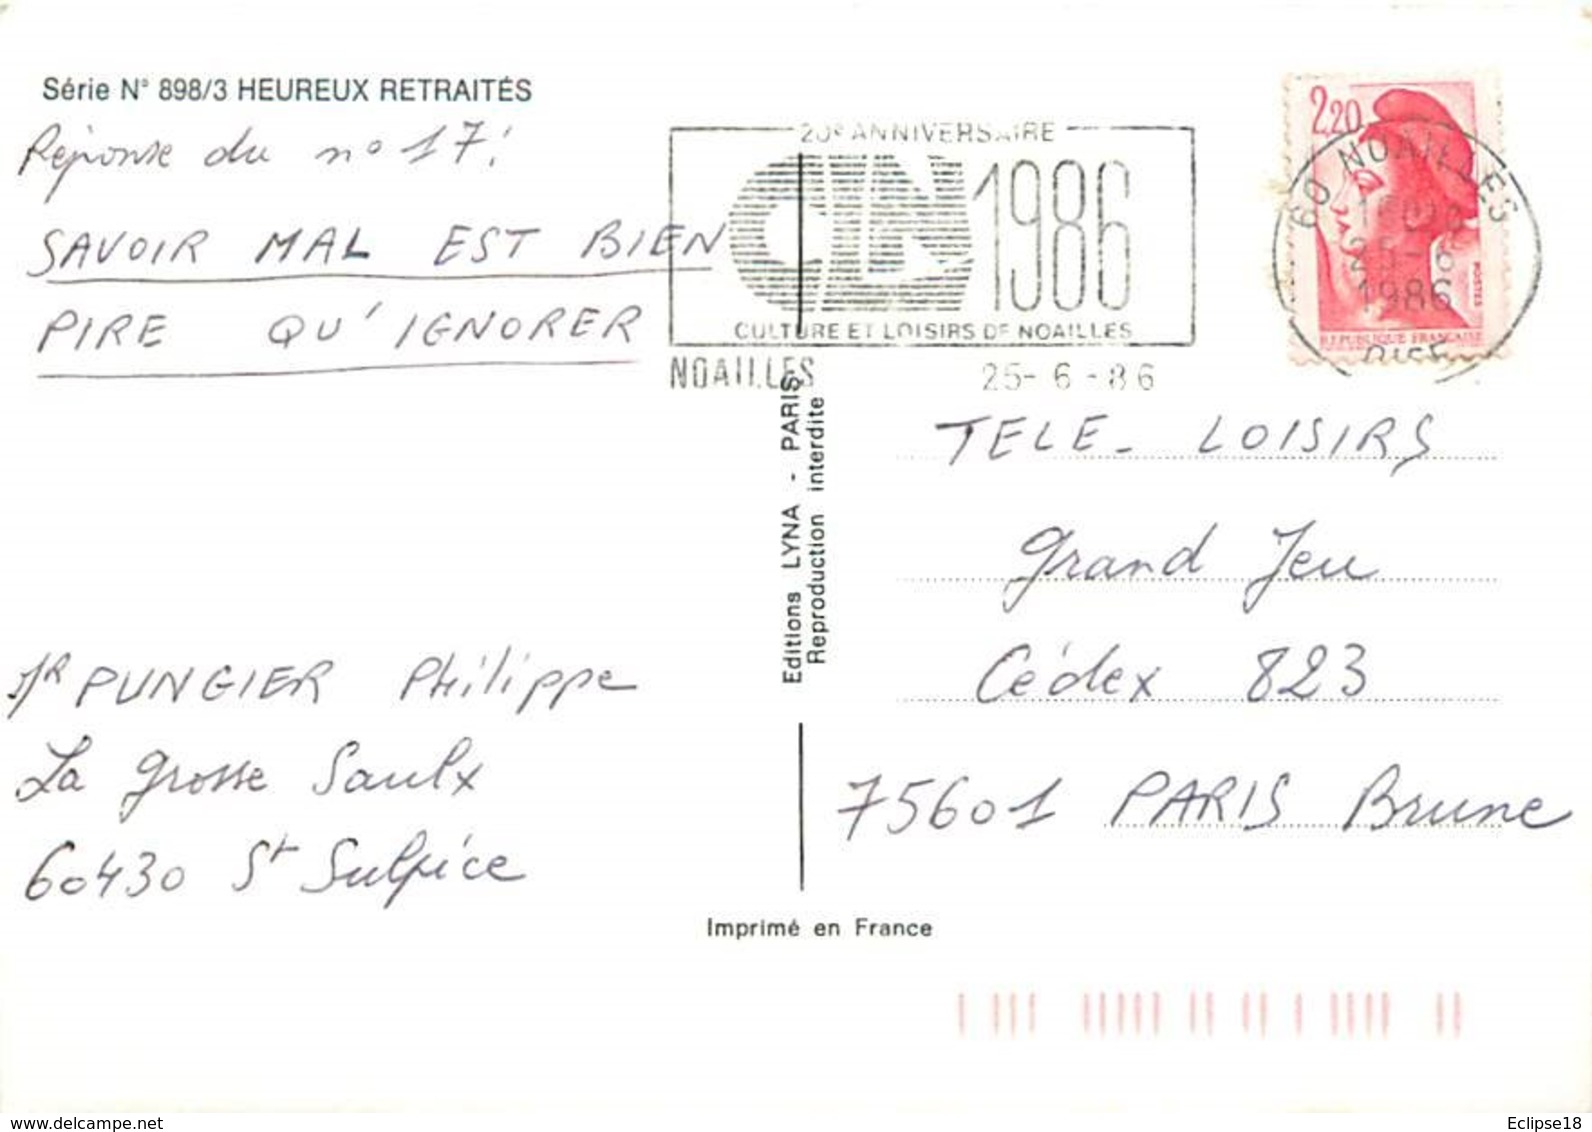 Série N° 898/3 HEUREUX RETRAITÉS
Réponse du n° 17:
SAVOIR MAL EST BIEN
PIRE QU'IGNORER
Mr PUNGIER Philippe
La grosse Saulx
60430 St Sulpice
20e ANNIVERSAIRE
CLN 1986
CULTURE ET LOISIRS DE NOAILLES
NOAILLES 25-6-86
2,20
60 NOAILLES
25-6
1986
OISE
POSTES
REPUBLIQUE FRANÇAISE
Editions LYNA - PARIS
Reproduction interdite
TELE-LOISIRS
Grand Jeu
Cédex 823
75601 PARIS Brune
Imprimé en France
Eclipse18